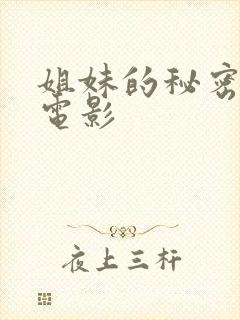 姐妹的秘密
電影
夜上三杆